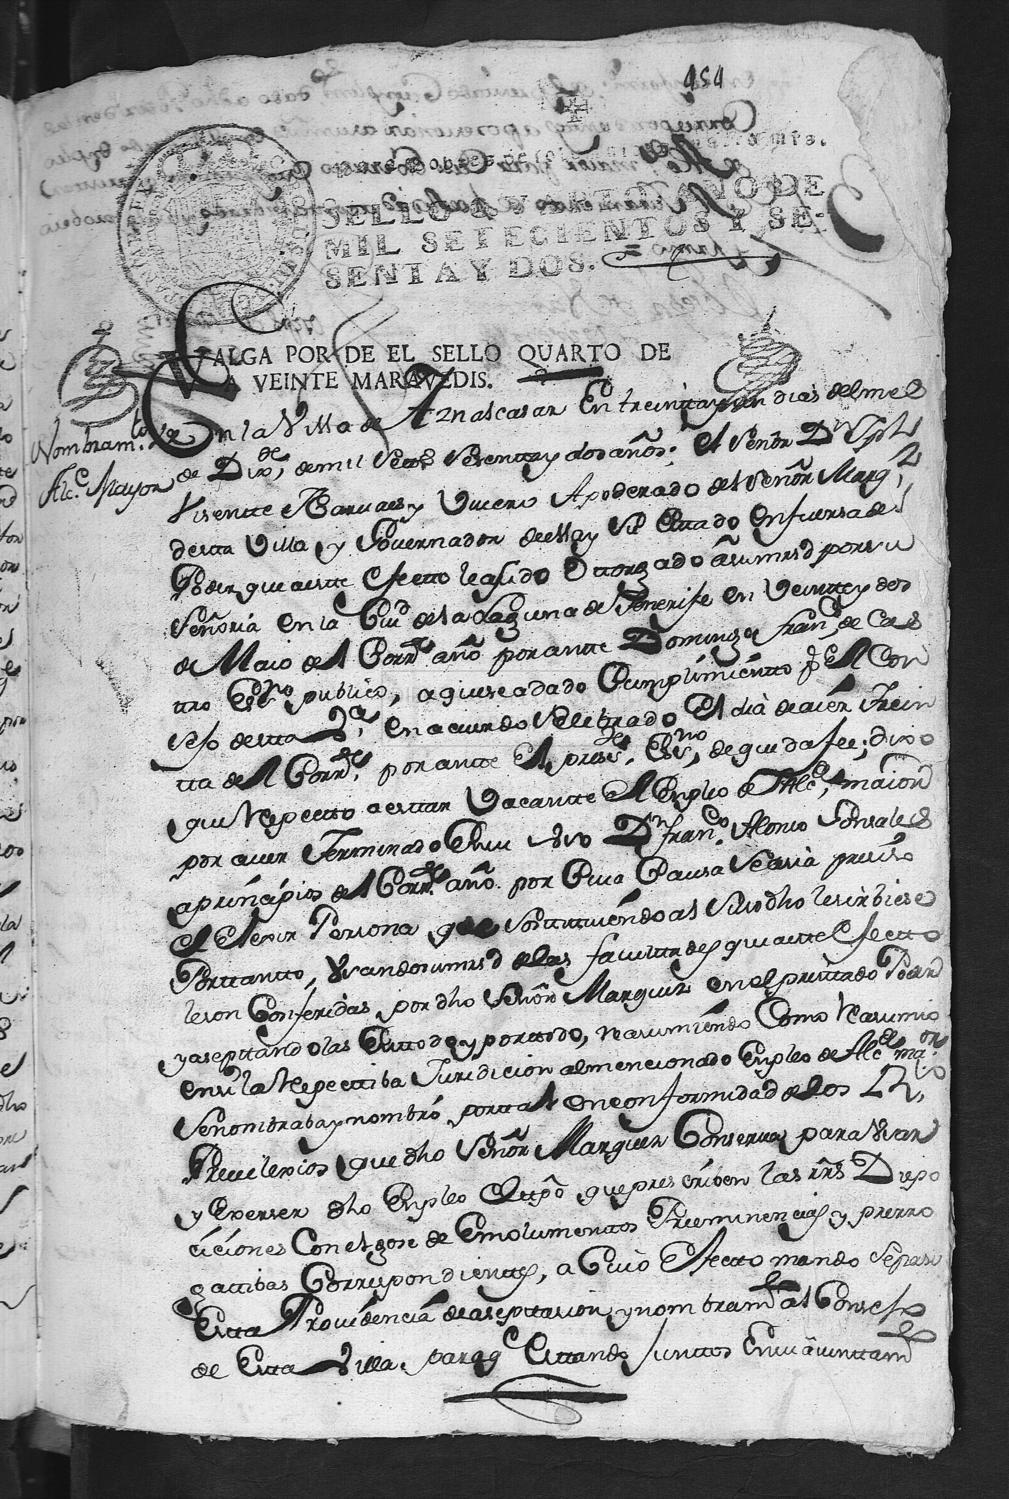 454
SELLO QUARTO, AÑO DE
MIL SETECIENTOS Y SE-
SENTA Y DOS.
VALGA POR DE EL SELLO QUARTO DE
A VEINTE MARAVEDIS.
Nombram.to de
Alc.e Mayor
En la Villa de Aznalcasar En treinta y un dias del mes
de Dix.re de mil Settes. Sesentta y dos años; El Señor D.n
Visentte Barvaes y Apoderado del Señor Marq.s
desta Villa, y Governador de ella y Su Estado en fuersa del
Poder que a estte efectto le a sido Ottorgado a su mrsd por su
Señoria en la Ciu.d de la Laguna de Tenerife en Veintte y dos
de Maio de el Corr.te año por antte Domingo Fran.co de Cas
tro Es.no publico, a que se a dado Cumplimientto p.r el Con
sejo de stta V.a en acuerdo Selebrado el dia de aier Trein
tta de el Corr.te por antte el pres.te Es.no de que da fee; dixo
que Respectto a esttar Vacantte el Empleo de Alc.e maior
por aver Terminado en su uso D.n Fran.co Alonso Gonsales
a prinsipios de el Corr.te año. por Cuia Causa Seria presiso
el Elexir Persona que Sostituiendo al Susodho le sirbiese
Porttantto, usando su mrsd de las facultades que a este efectto
le son Conferidas por dho Señor Marques en el prësittado Poder
y aseptandolas En ttodo y por ttodo, reasumiendo Como Reasumio
en si la Respecttiba Juridicion al mencionado Empleo de Alc.e ma.or
Se nombraba y nombró por tal en conformidad de los R.s
Previlexios que dho Señor Marques Conserva para usar
y Exerser dho Empleo que prescriben las rrs Dispo
ciciones Con el gose de Emolumenttos Preeminencias y prerro
gattibas Correspondienttes, a Cuio Efectto mando Se pase
Estta Providencia de aseptasion y nombram.to al Consejo
de Estta Villa. para q.e Esttando Junttos En su aiunttam.to